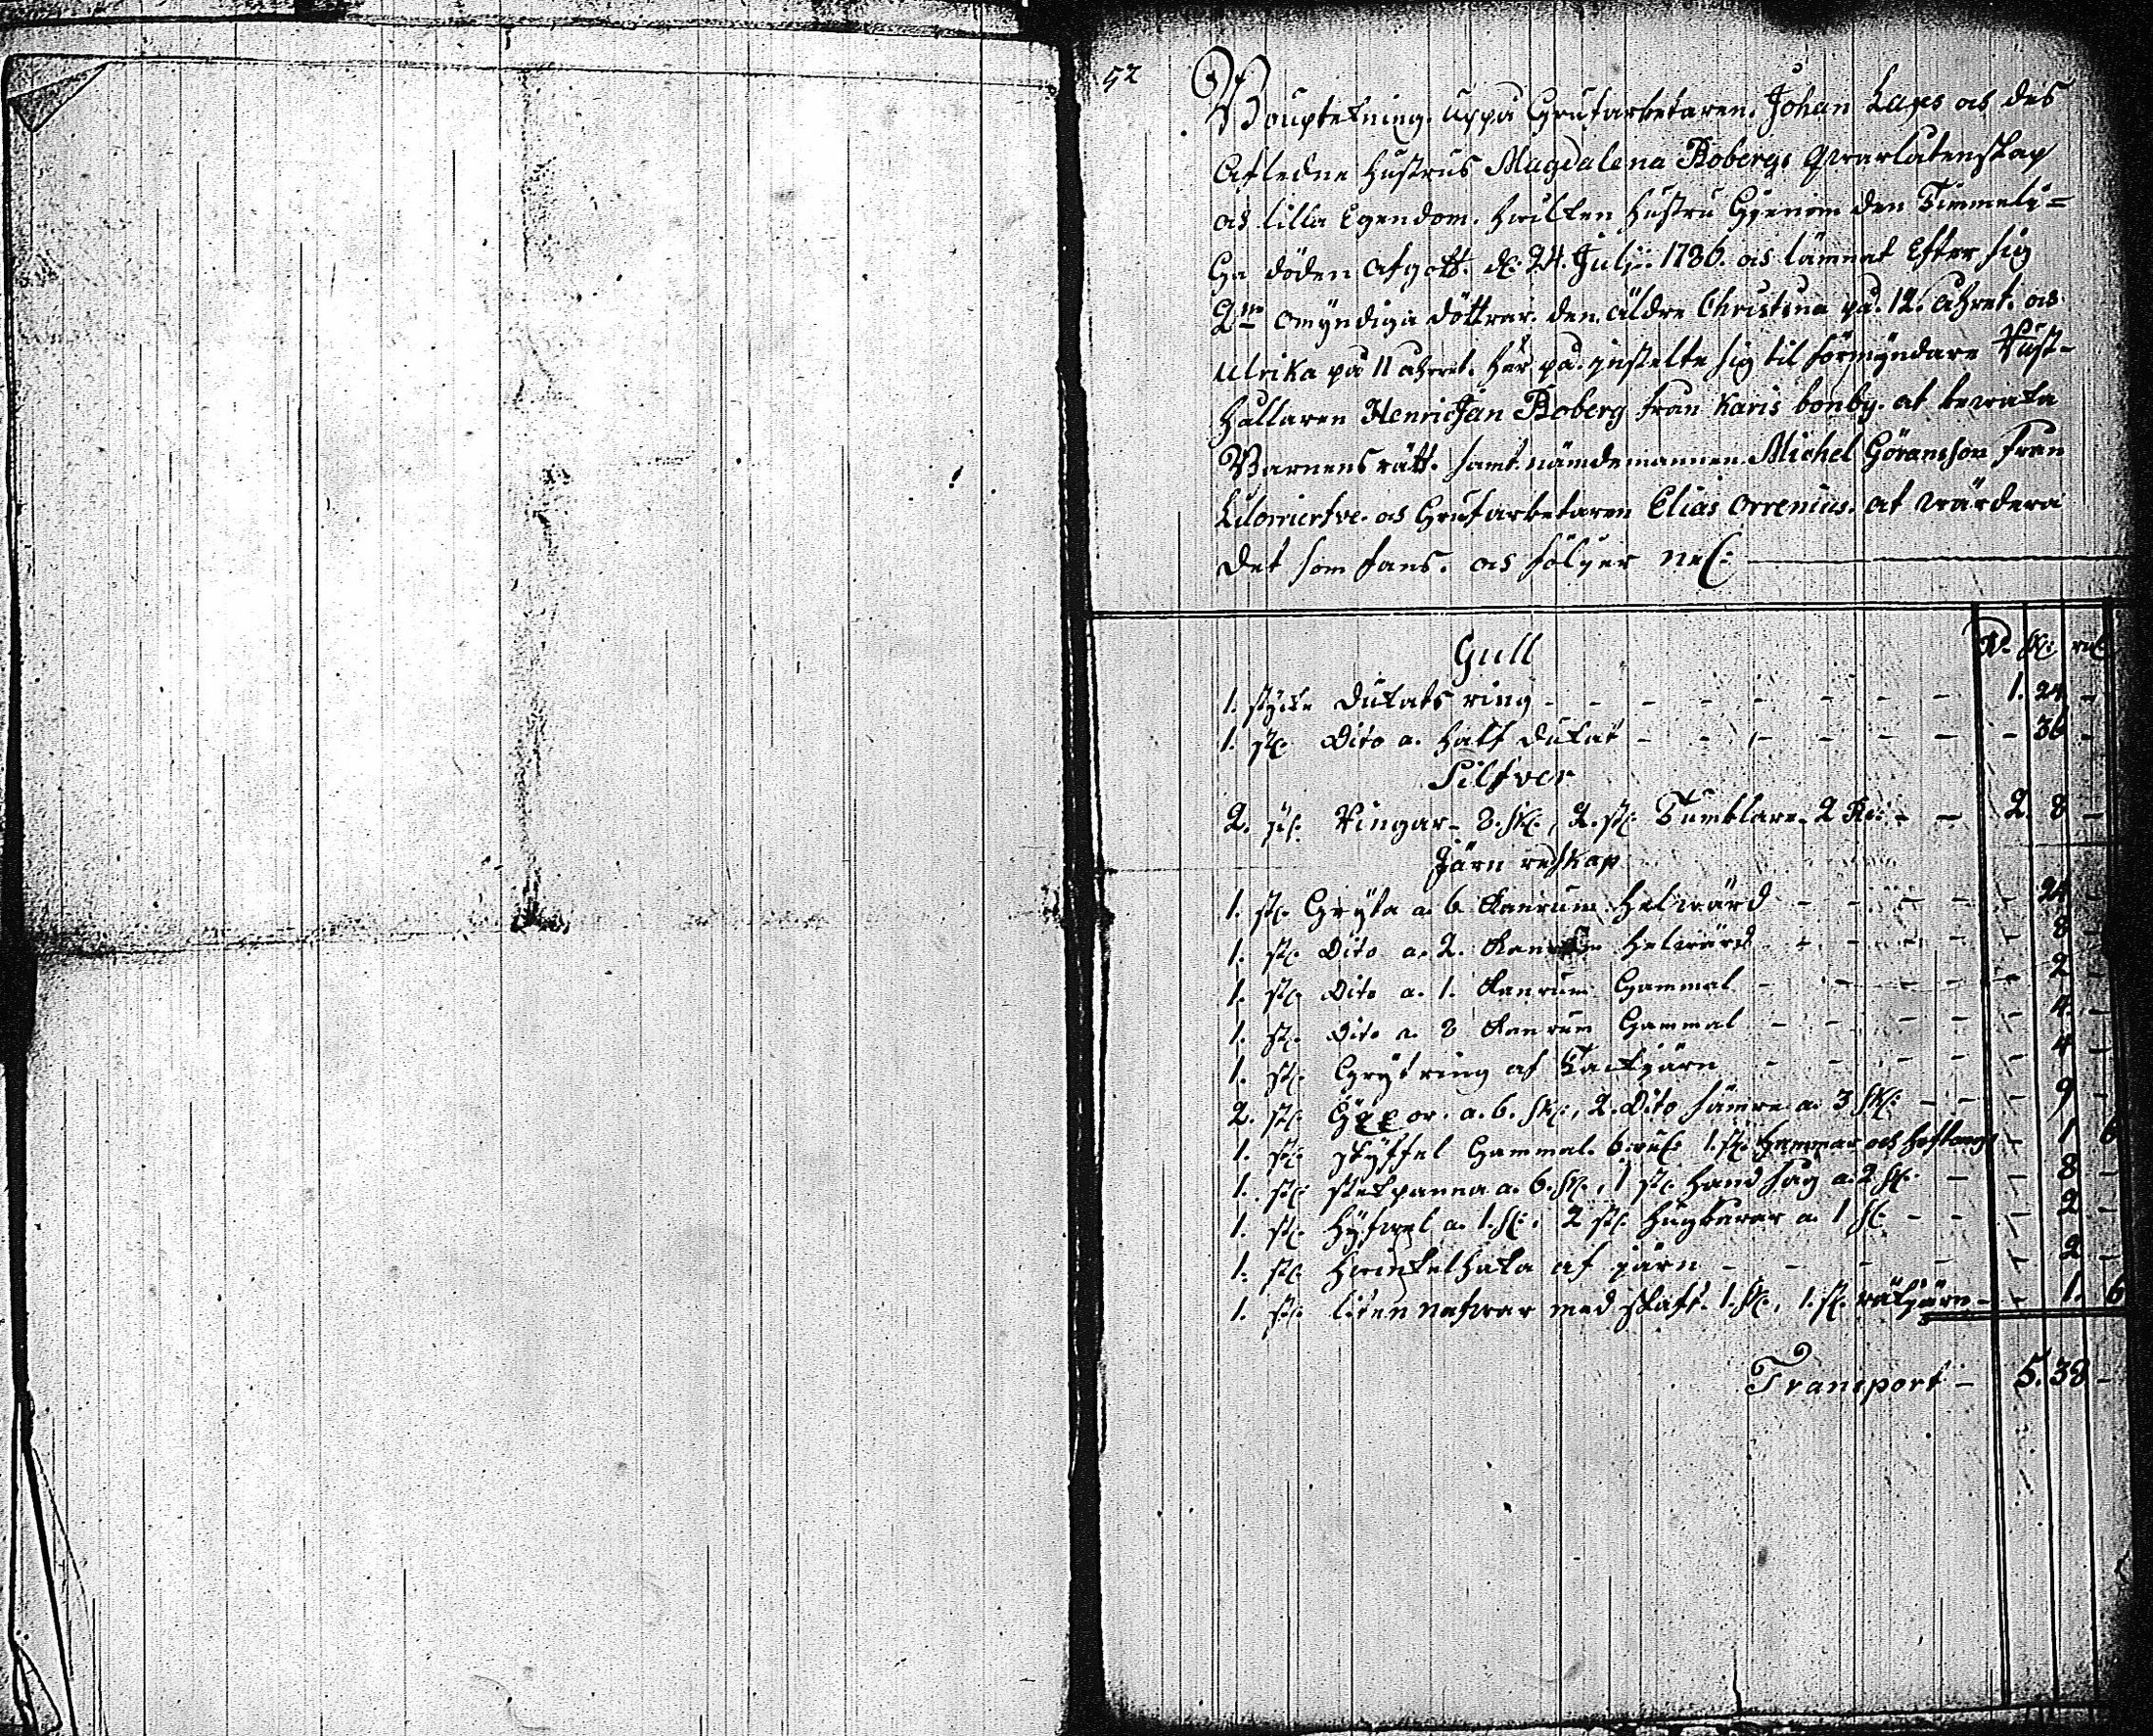 52
Bouptekning. uppå Grufarbetaren. Johan Laxs os des
Afledne hustrus Magdalena Robergs qvarlatenskap
os lilla Egendom. hvilken hustru Gjenom den Timmeli=
Ga döden afgått. d: 24. Julji. 1786. os lämnat Efter sig
2ne omÿndiga döttrar. den äldre Christina på. 12. åhret. os
Ulrika på 11 åhret. här på. instelte sig til förmÿndare Rust-
hållaren Henric Jan Roberg från Karis bonby. at bevaka
Barnens rätt. samt nämdemannen Michel Göransson från
os Grufarbetaren Elias Orrenius. at värdera
Det som fans. os fölljer nel:
Gull
R. sk: rst
1. stÿcke Dukats ring - 1. 24 -
1. st: Dito a. half dukat - - 36 -
Silfver
2. st: Ringar - 8. sk:, 2. st: Tumblare. 2 R: - 2. 8 -
Järn redskap
1. st: Grÿta a. 6 Kanrum helvärd - - 24 -
1. st: Dito a. 2. Kanrum helvärd - - 8 -
1. st: Dito a. 1. Kanrum Gammal - - 2 -
1. st: Dito a. 3 Kanrum Gammal - - 4. -
1. st: Grÿt ring af Tackjärn - - 4 -
2. st: or. a. 6. sk:, 2. Dito sämre a. 3 sk: - - 9 -
1. st: skÿffel Gammal. 6. rst: 1. st: hammar och hoftång - 1 6
1. st: stekpanna a. 6. sk:, 1 st: hand såg a. 2 sk: - - 8 -
1. st: hÿfvel a. 1. sk:, 2 st: a 1 sk: - - 2 -
1. st: Hvinkelhaka af järn - - 2 -
1. st: liten nafvar med skaft. 1. sk:, 1. st: - 1. 6
Transport - 5. 38 -